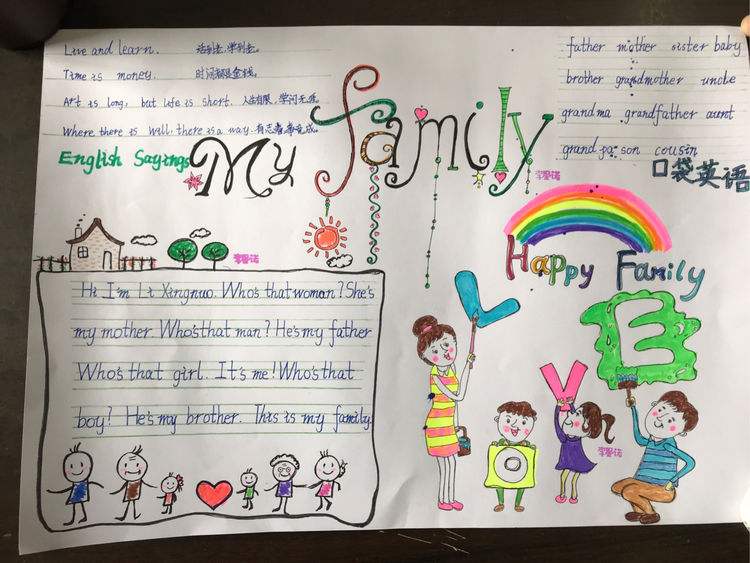 Live and learn. 活到老，学到老。
Time is money. 时间就是金钱。
Art is long, but life is short. 人生有限，学问无涯。
Where there is will, there is a way. 有志者，事竟成。
English Sayings
My family
father mother sister baby
brother grandmother uncle
grandma grandfather aunt
grandpa son cousin
口袋英语
Happy Family
Hi I'm Li Xingnuo. Who's that woman? She's
my mother. Who's that man? He's my father
Who's that girl. It's me! Who's that
boy? He's my brother. This is my family.
L O V E